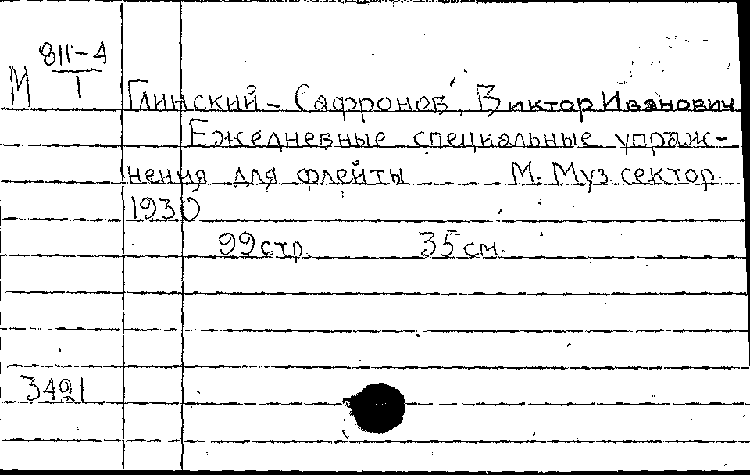 М 811-4
1
Глинский - Сафронов, Виктор Иванович
Ежедневные специальные упраж-
нения для флейты М. Муз. сектор
1930
99 стр. 35 см.
3421